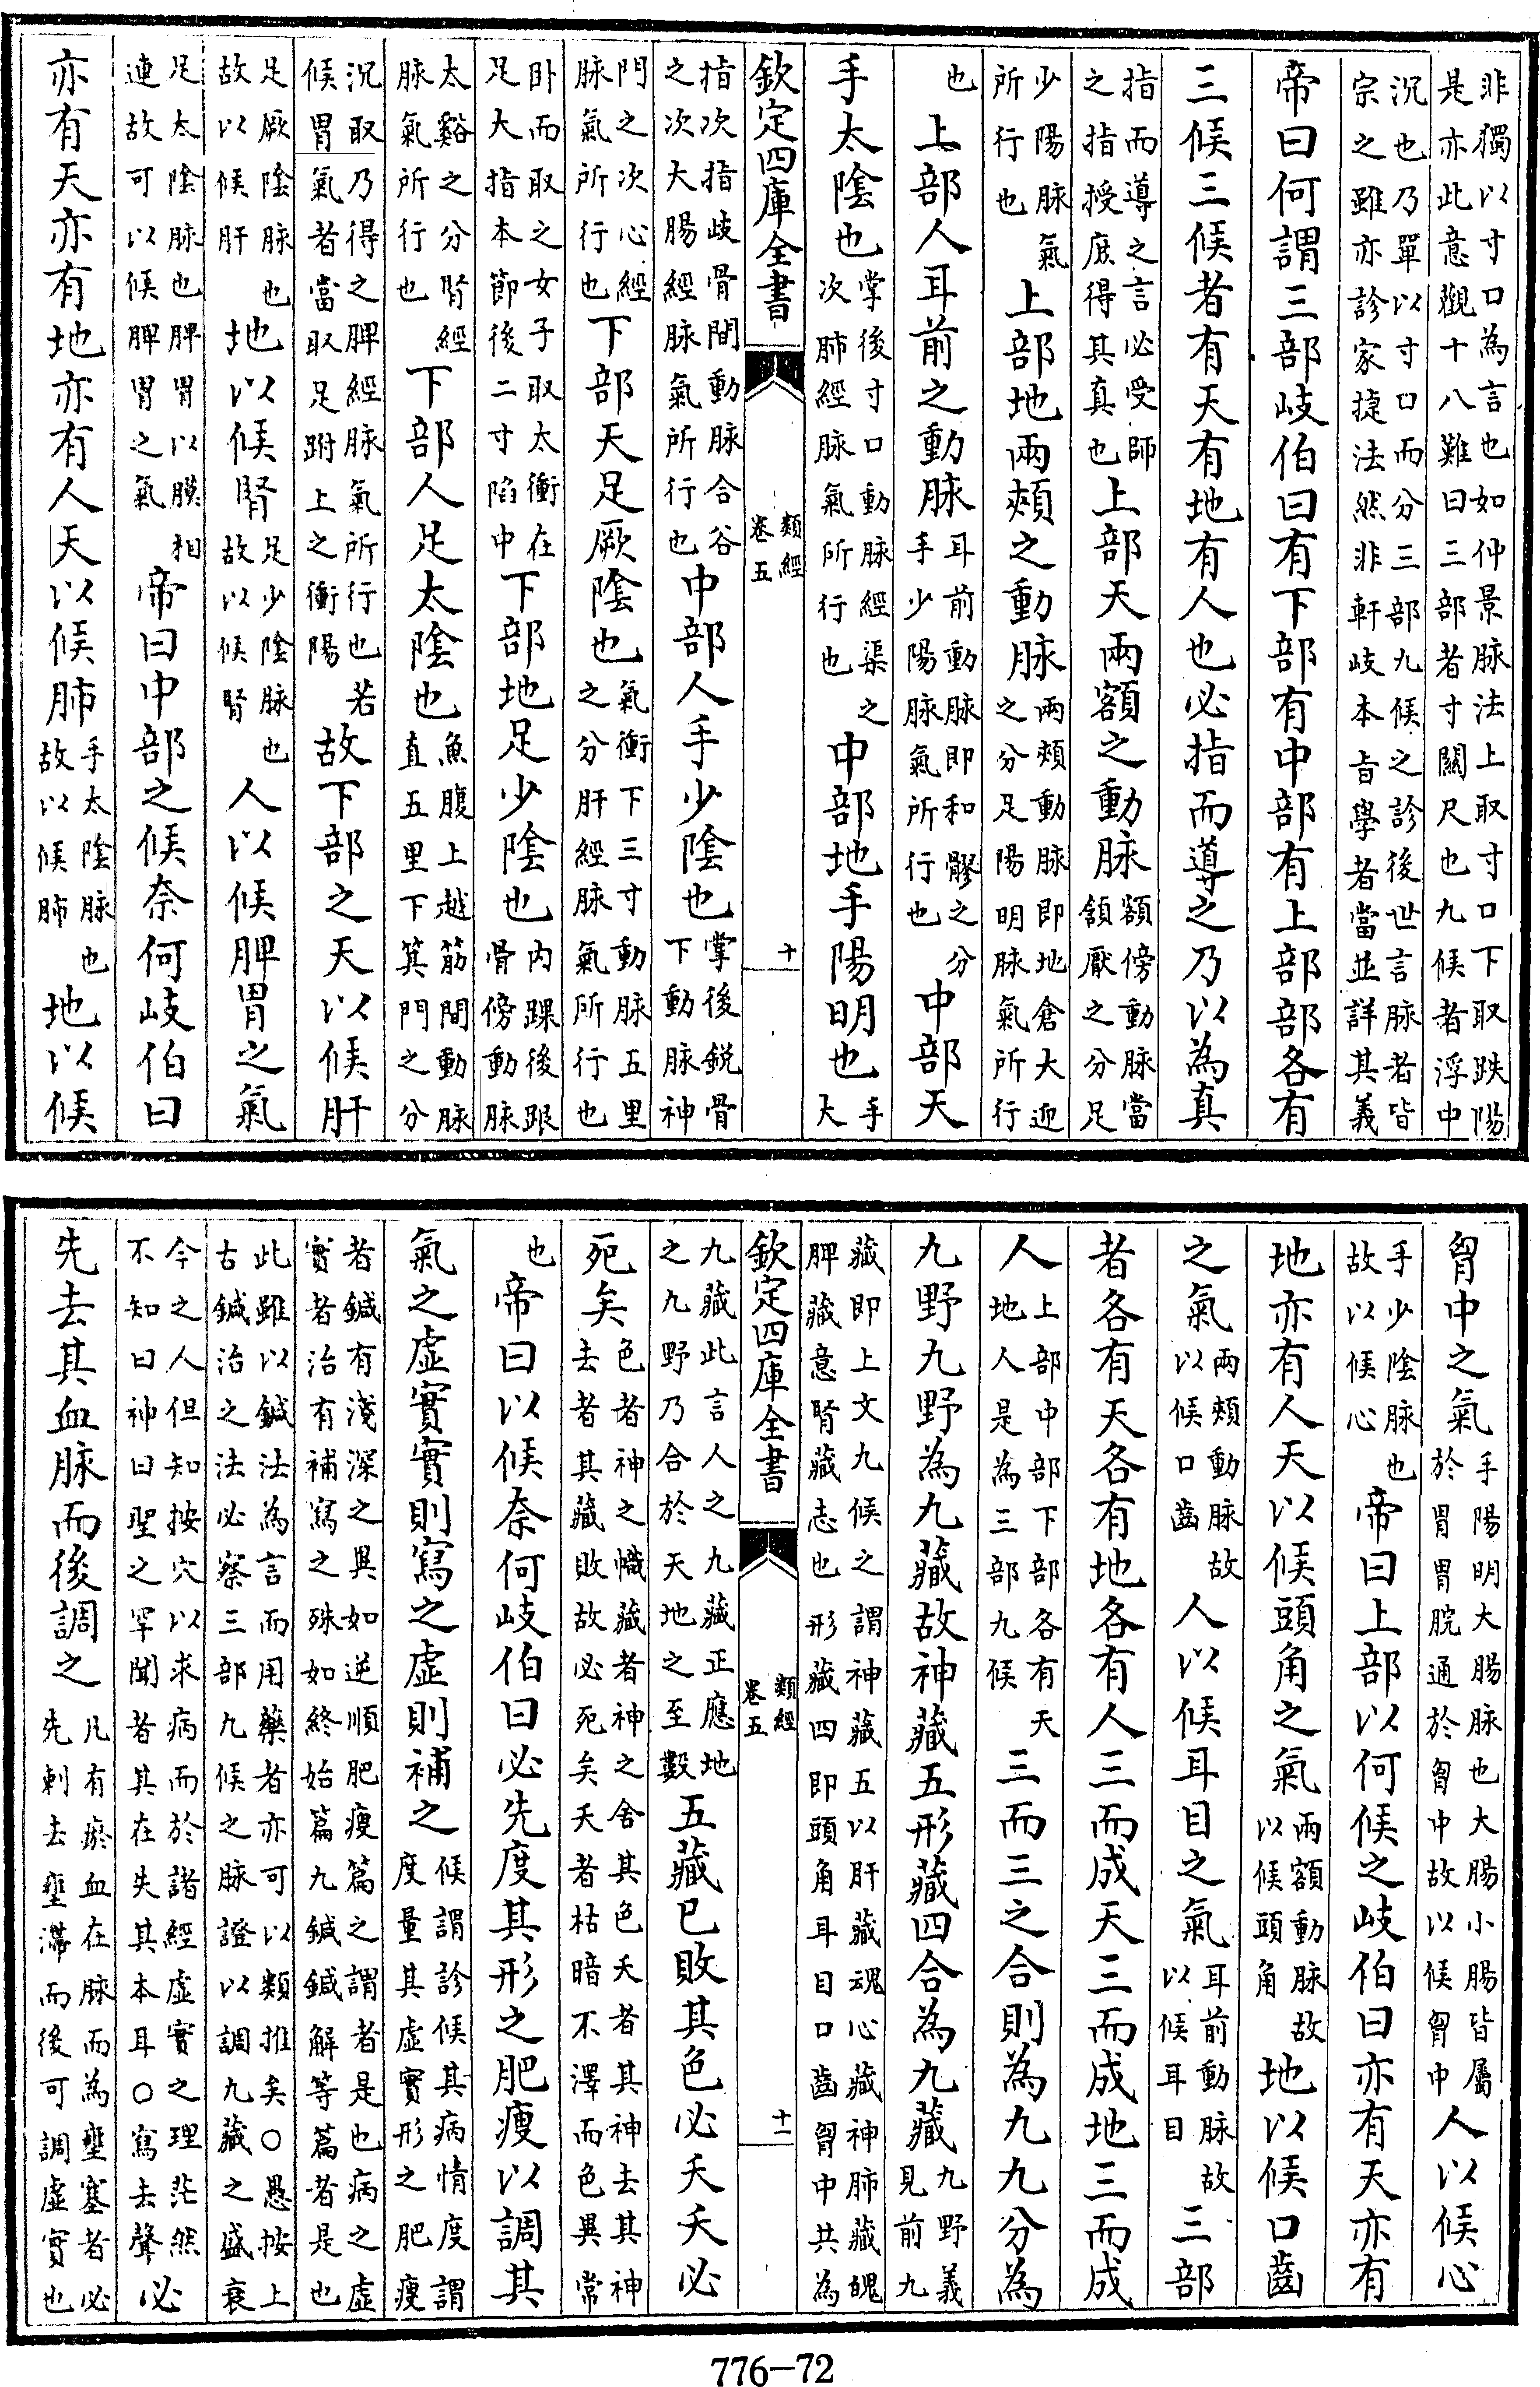 非獨以寸口為言也如仲景脉法上取寸口下取趺陽
是亦此意觀十八難曰三部者寸關尺也九候者浮中
沉也乃單以寸口而分三部九候之診後世言脉者皆
宗之雖亦診家捷法然非軒岐本旨學者當並詳其義
帝曰何謂三部岐伯曰有下部有中部有上部部各有
三候三候者有天有地有人也必指而導之乃以為真
指而導之言必受師之指授庶得其真也上部天兩額之動脉額傍動脉當頷厭之分足
少陽脉氣所行也上部地兩頰之動脉兩頰動脉即地倉大迎之分足陽明脉氣所行
也上部人耳前之動脉耳前動脉即和髎之分手少陽脉氣所行也中部天
手太陰也掌後寸口動脉經渠之次肺經脉氣所行也中部地手陽明也手大
欽定四庫全書 類經 卷五 十
指次指歧骨間動脉合谷之次大腸經脉氣所行也中部人手少陰也掌後鋭骨下動脉神
門之次心經脉氣所行也下部天足厥陰也氣衝下三寸動脉五里之分肝經脉氣所行也
卧而取之女子取太衝在足大指本節後二寸陷中下部地足少陰也内踝後跟骨傍動脉
太谿之分腎經脉氣所行也下部人足太陰也魚腹上越筋間動脉直五里下箕門之分
沉取乃得之脾經脉氣所行也若候胃氣者當取足跗上之衝陽故下部之天以候肝
足厥陰脉也故以候肝地以候腎足少陰脉也故以候腎人以候脾胃之氣
足太陰脉也脾胃以膜相連故可以候脾胃之氣帝曰中部之候奈何岐伯曰
亦有天亦有地亦有人天以候肺手太陰脉也故以候肺地以候
胷中之氣手陽明大腸脉也大腸小腸皆屬於胃胃脘通於胷中故以候胷中人以候心
手少陰脉也故以候心帝曰上部以何候之岐伯曰亦有天亦有
地亦有人天以候頭角之氣兩額動脉故以候頭角地以候口齒
之氣兩頰動脉故以候口齒人以候耳目之氣耳前動脉故以候耳目三部
者各有天各有地各有人三而成天三而成地三而成
人上部中部下部各有天地人是為三部九候三而三之合則為九九分為
九野九野為九藏故神藏五形藏四合為九藏九野義見前九
藏即上文九候之謂神藏五以肝藏魂心藏神肺藏魄
脾藏意腎藏志也形藏四即頭角耳目口齒胷中共為
欽定四庫全書 類經 卷五 十一
九藏此言人之九藏正應地之九野乃合於天地之至數五藏已敗其色必夭夭必
死矣色者神之幟藏者神之舍其色夭者其神去其神去者其藏敗故必死矣夭者枯暗不澤而色異常
也帝曰以候奈何岐伯曰必先度其形之肥瘦以調其
氣之虛實實則寫之虛則補之候謂診候其病情度謂度量其虛實形之肥瘦
者鍼有淺深之異如逆順肥瘦篇之謂者是也病之虛
實者治有補寫之殊如終始篇九鍼鍼解等篇者是也
此雖以鍼法為言而用藥者亦可以類推矣○愚按上
古鍼治之法必察三部九候之脉證以調九藏之盛衰
今之人但知按穴以求病而於諸經虛實之理茫然不知曰神曰聖之罕聞者其在失其本耳○寫去聲必
先去其血脉而後調之凡有瘀血在脉而為壅塞者必先刺去壅滯而後可調虛實也
776-72